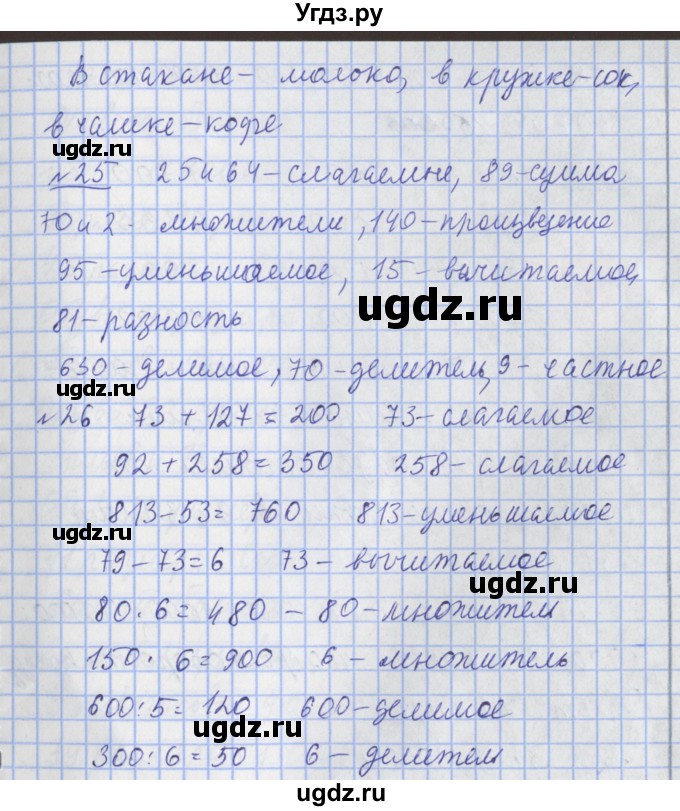 Угдз.ру
В стакане - молоко, в кружке - сок,
в чашке - кофе
ugdz.ru
№25 25 и 64 - слагаемые, 89 - сумма
70 и 2 - множители, 140 - произведение
ugdz.ru
95 - уменьшаемое, 15 - вычитаемое,
ugdz.ru
81 - разность
630 - делимое, 70 - делитель, 9 - частное
ugdz.ru
№26 73 + 127 = 200 73 - слагаемое
92 + 258 = 350 258 - слагаемое
813 - 53 = 760 813 - уменьшаемое
ugdz.ru
79 - 73 = 6 73 - вычитаемое
ugdz.ru
80 · 6 = 480 - 80 - множитель
150 · 6 = 900 6 - множитель
ugdz.ru
600 : 5 = 120 600 - делимое
ugdz.ru
300 : 6 = 50 6 - делитель
ugdz.ru
ugdz.ru